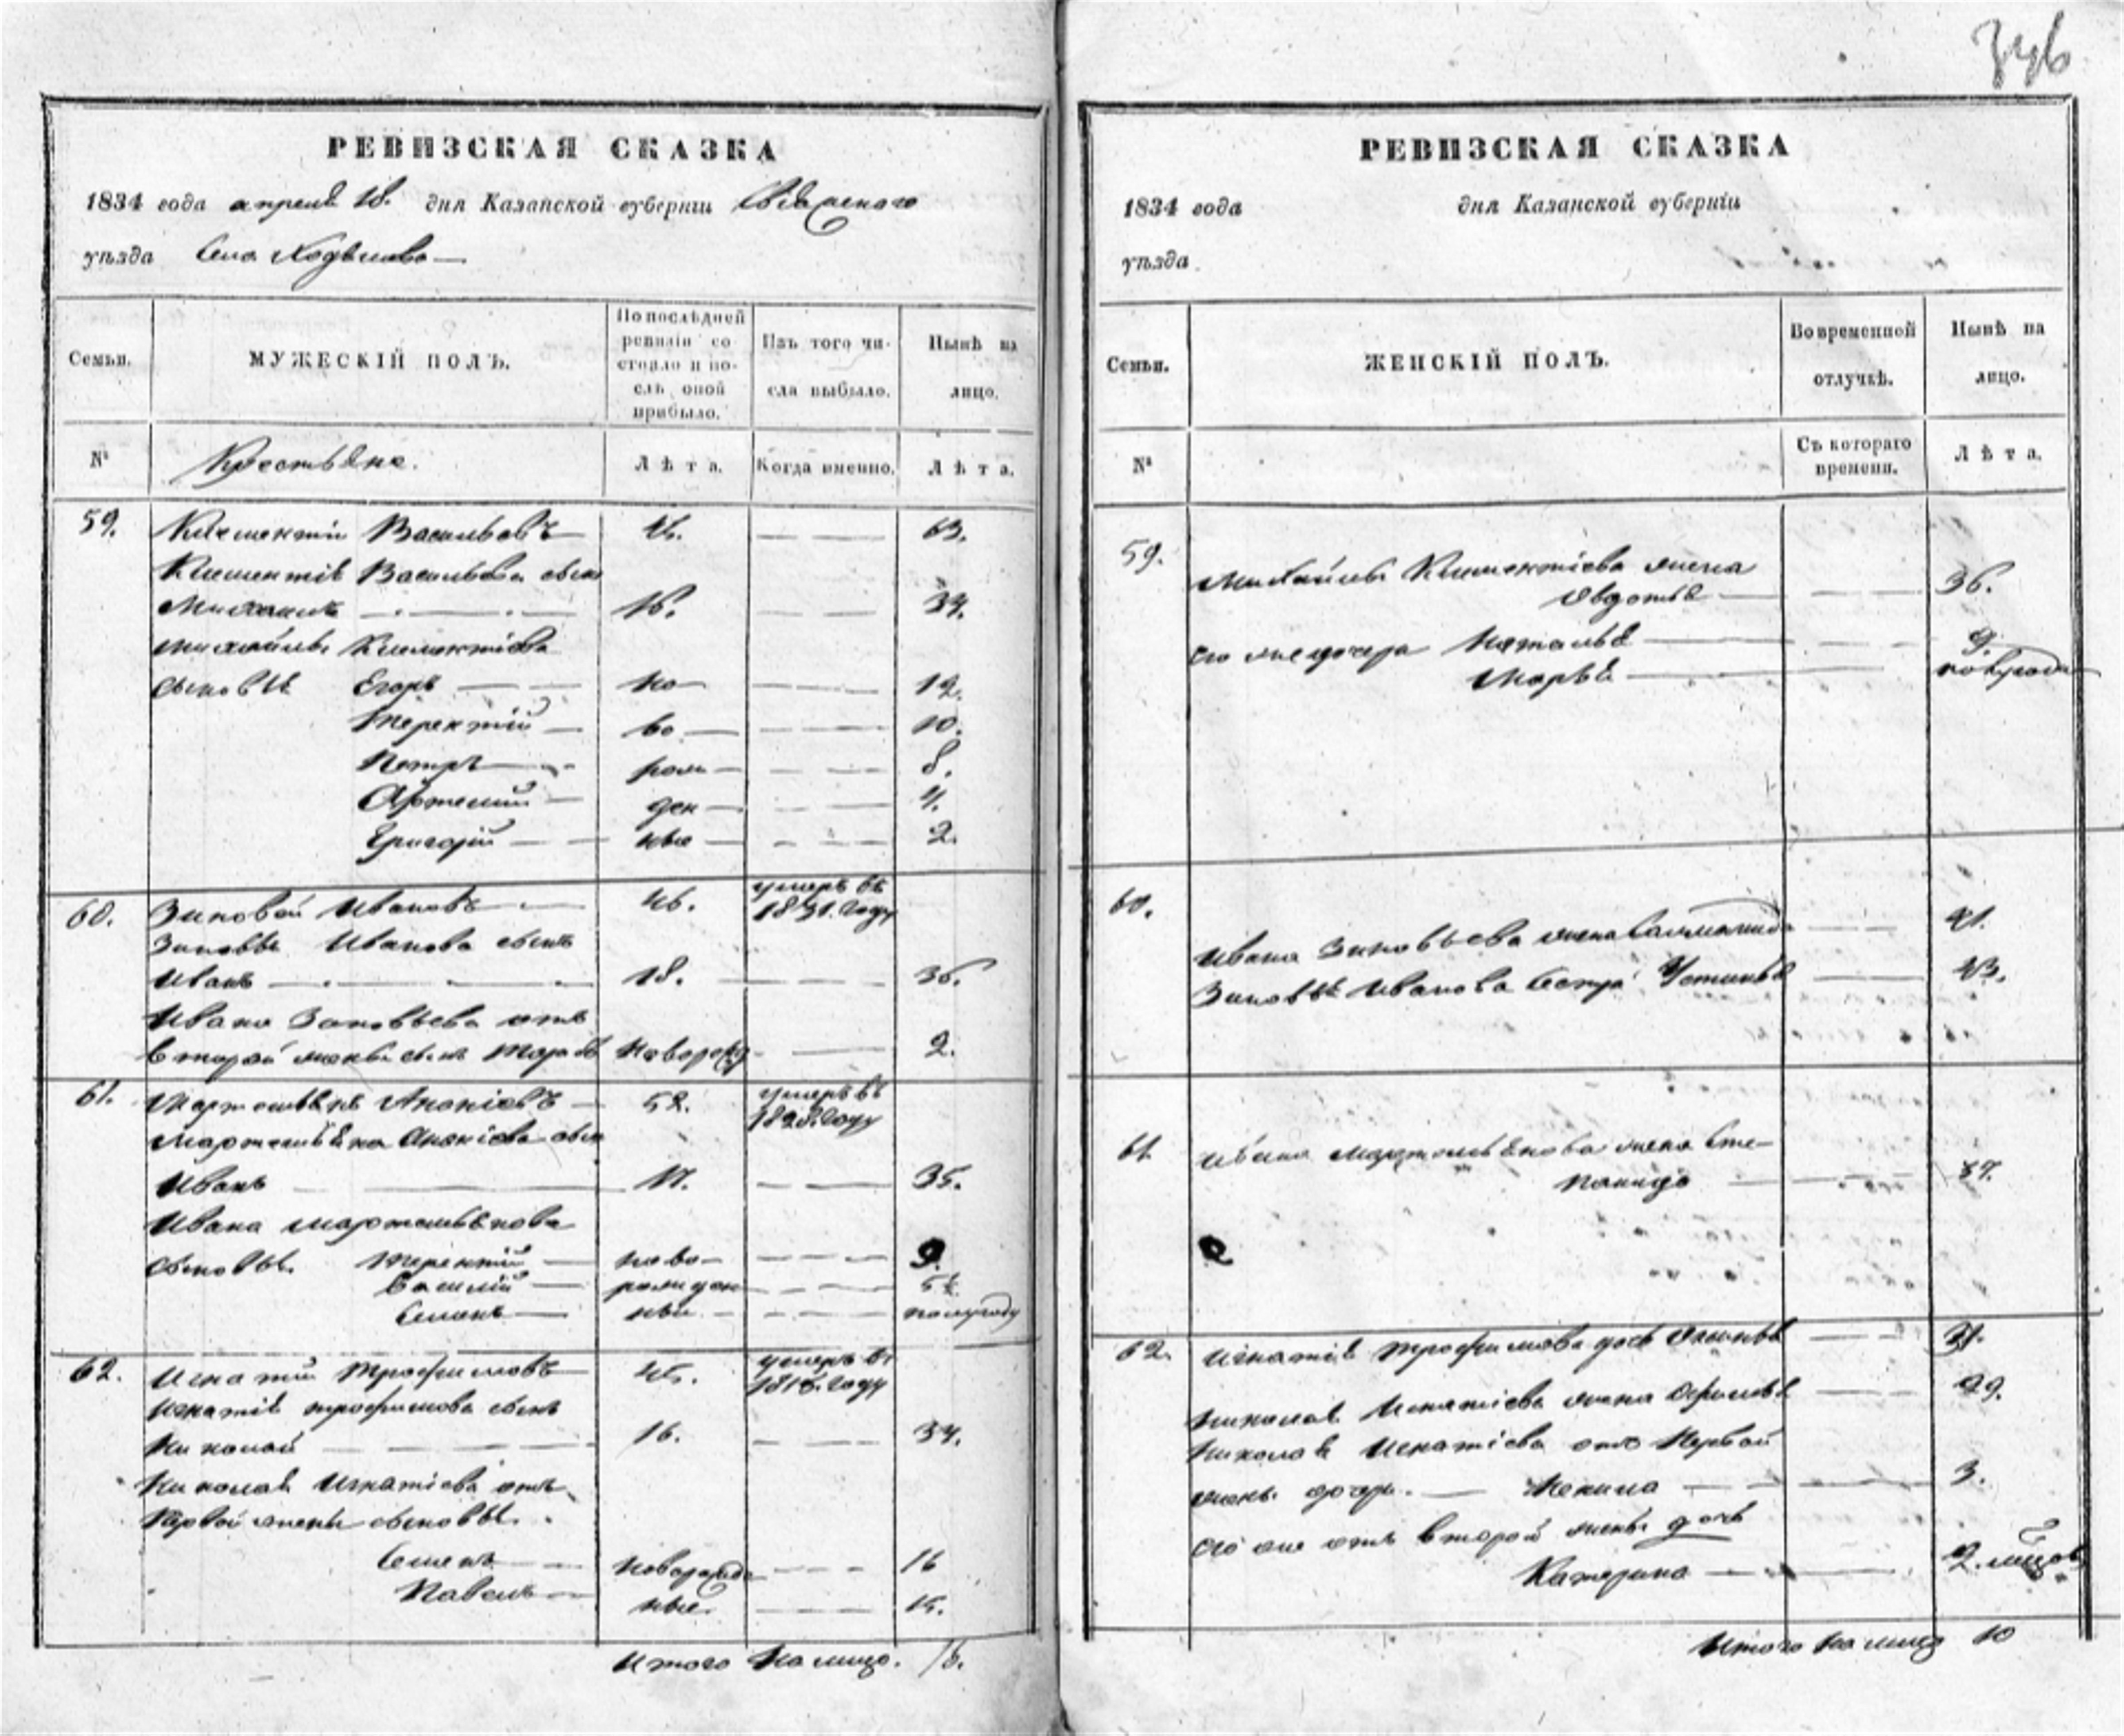 РЕВИЗСКАЯ СКАЗКА
1834 года апреля 18. дня Казанской губернiи Свiяжского
уѣзда Села
Семьи.
МУЖЕСКIЙ ПОЛЪ.
По послѣдней ревизiи состояло и послѣ оной прибыло.
Изъ того числа выбыло.
Нынѣ на лицо.
№
Крестьяне.
Лѣта.
Когда именно.
Лѣта.
59. Климентiй Васильевъ 63.
Климентiя Васильева сынъ
Михаилъ 16. 34.
Михайлы Климентiева
сыновья Егоръ но 12.
Терентiй во 10.
Петръ рож 8.
Артемiй ден 4.
Григорiй ные 2.
60. Зиновей Ивановъ 46. умеръ въ 1831. году
Зиновья Иванова сынъ
Иванъ 18. 36.
Ивана Зиновьева отъ
второй жены сынъ Новорожд 2.
61. Мартемьянъ Ананiевъ 52. умеръ въ 1828. году
Мартемьяна Ананiева сынъ
Иванъ 17. 35.
Ивана Мартемьянова
сыновья. Терентiй ново 9.
Василiй рожден 5½
Семенъ ные полугоду
62. Игнатiй Трофимовъ 45. умеръ въ году
Игнатiя Трофимова сынъ
Николай 16. 34.
Николая Игнатiева отъ
первой жены сыновья.
Семенъ Новорожде 16
Павелъ ные. 15.
Итого на лицо. 16.
РЕВИЗСКАЯ СКАЗКА
1834 года дня Казанской губернiи
уѣзда
Семьи.
ЖЕНСКIЙ ПОЛЪ.
Во временной отлучкѣ.
Нынѣ на лицо.
№
Съ котораго времени.
Лѣта.
59. Михайлы Климентiева жена
Авдотья 36.
Его же дочери Наталья 9.
Марья полугода
60.
Ивана Зиновьева жена 41.
Зиновья Иванова сестра Устинья 43.
61 Ивана Мартемьянова жена Сте-
панида 37.
62. Игнатiя Трофимова дочь
Николая Игнатiева жена Афимья 29.
Николая Игнатiева отъ первой
жены дочерь. 3.
Его же отъ второй жены дочь
Катерина 2. мѣсяц
Итого на лицо 10